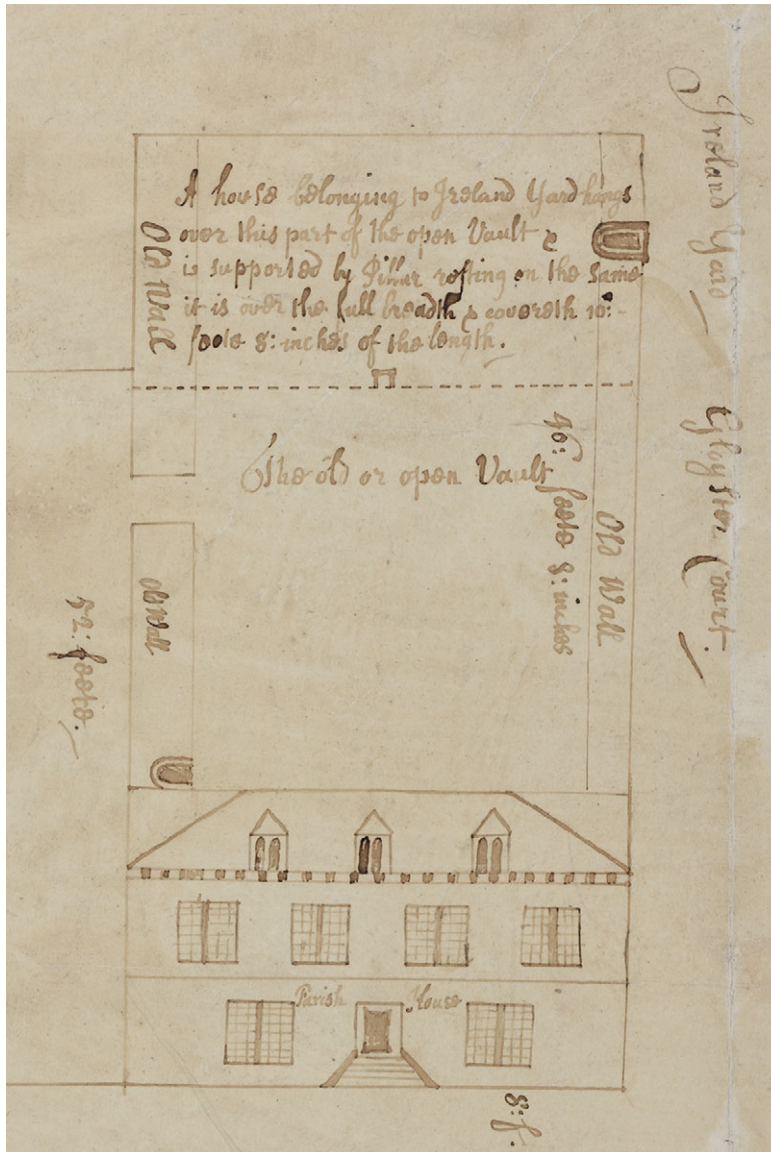 A house belonging to Ireland Yard hangs
over this part of the open Vault &
is supported by Pillar resting on the same
it is over the full breadth & covereth 10:
foote 8: inches of the length.
Old Wall
The old or open Vault
46: foote 8: inches
Old Wall
Old Wall
52: foote.
Ireland Yard
Glayster Court.
Parish House
8: f.